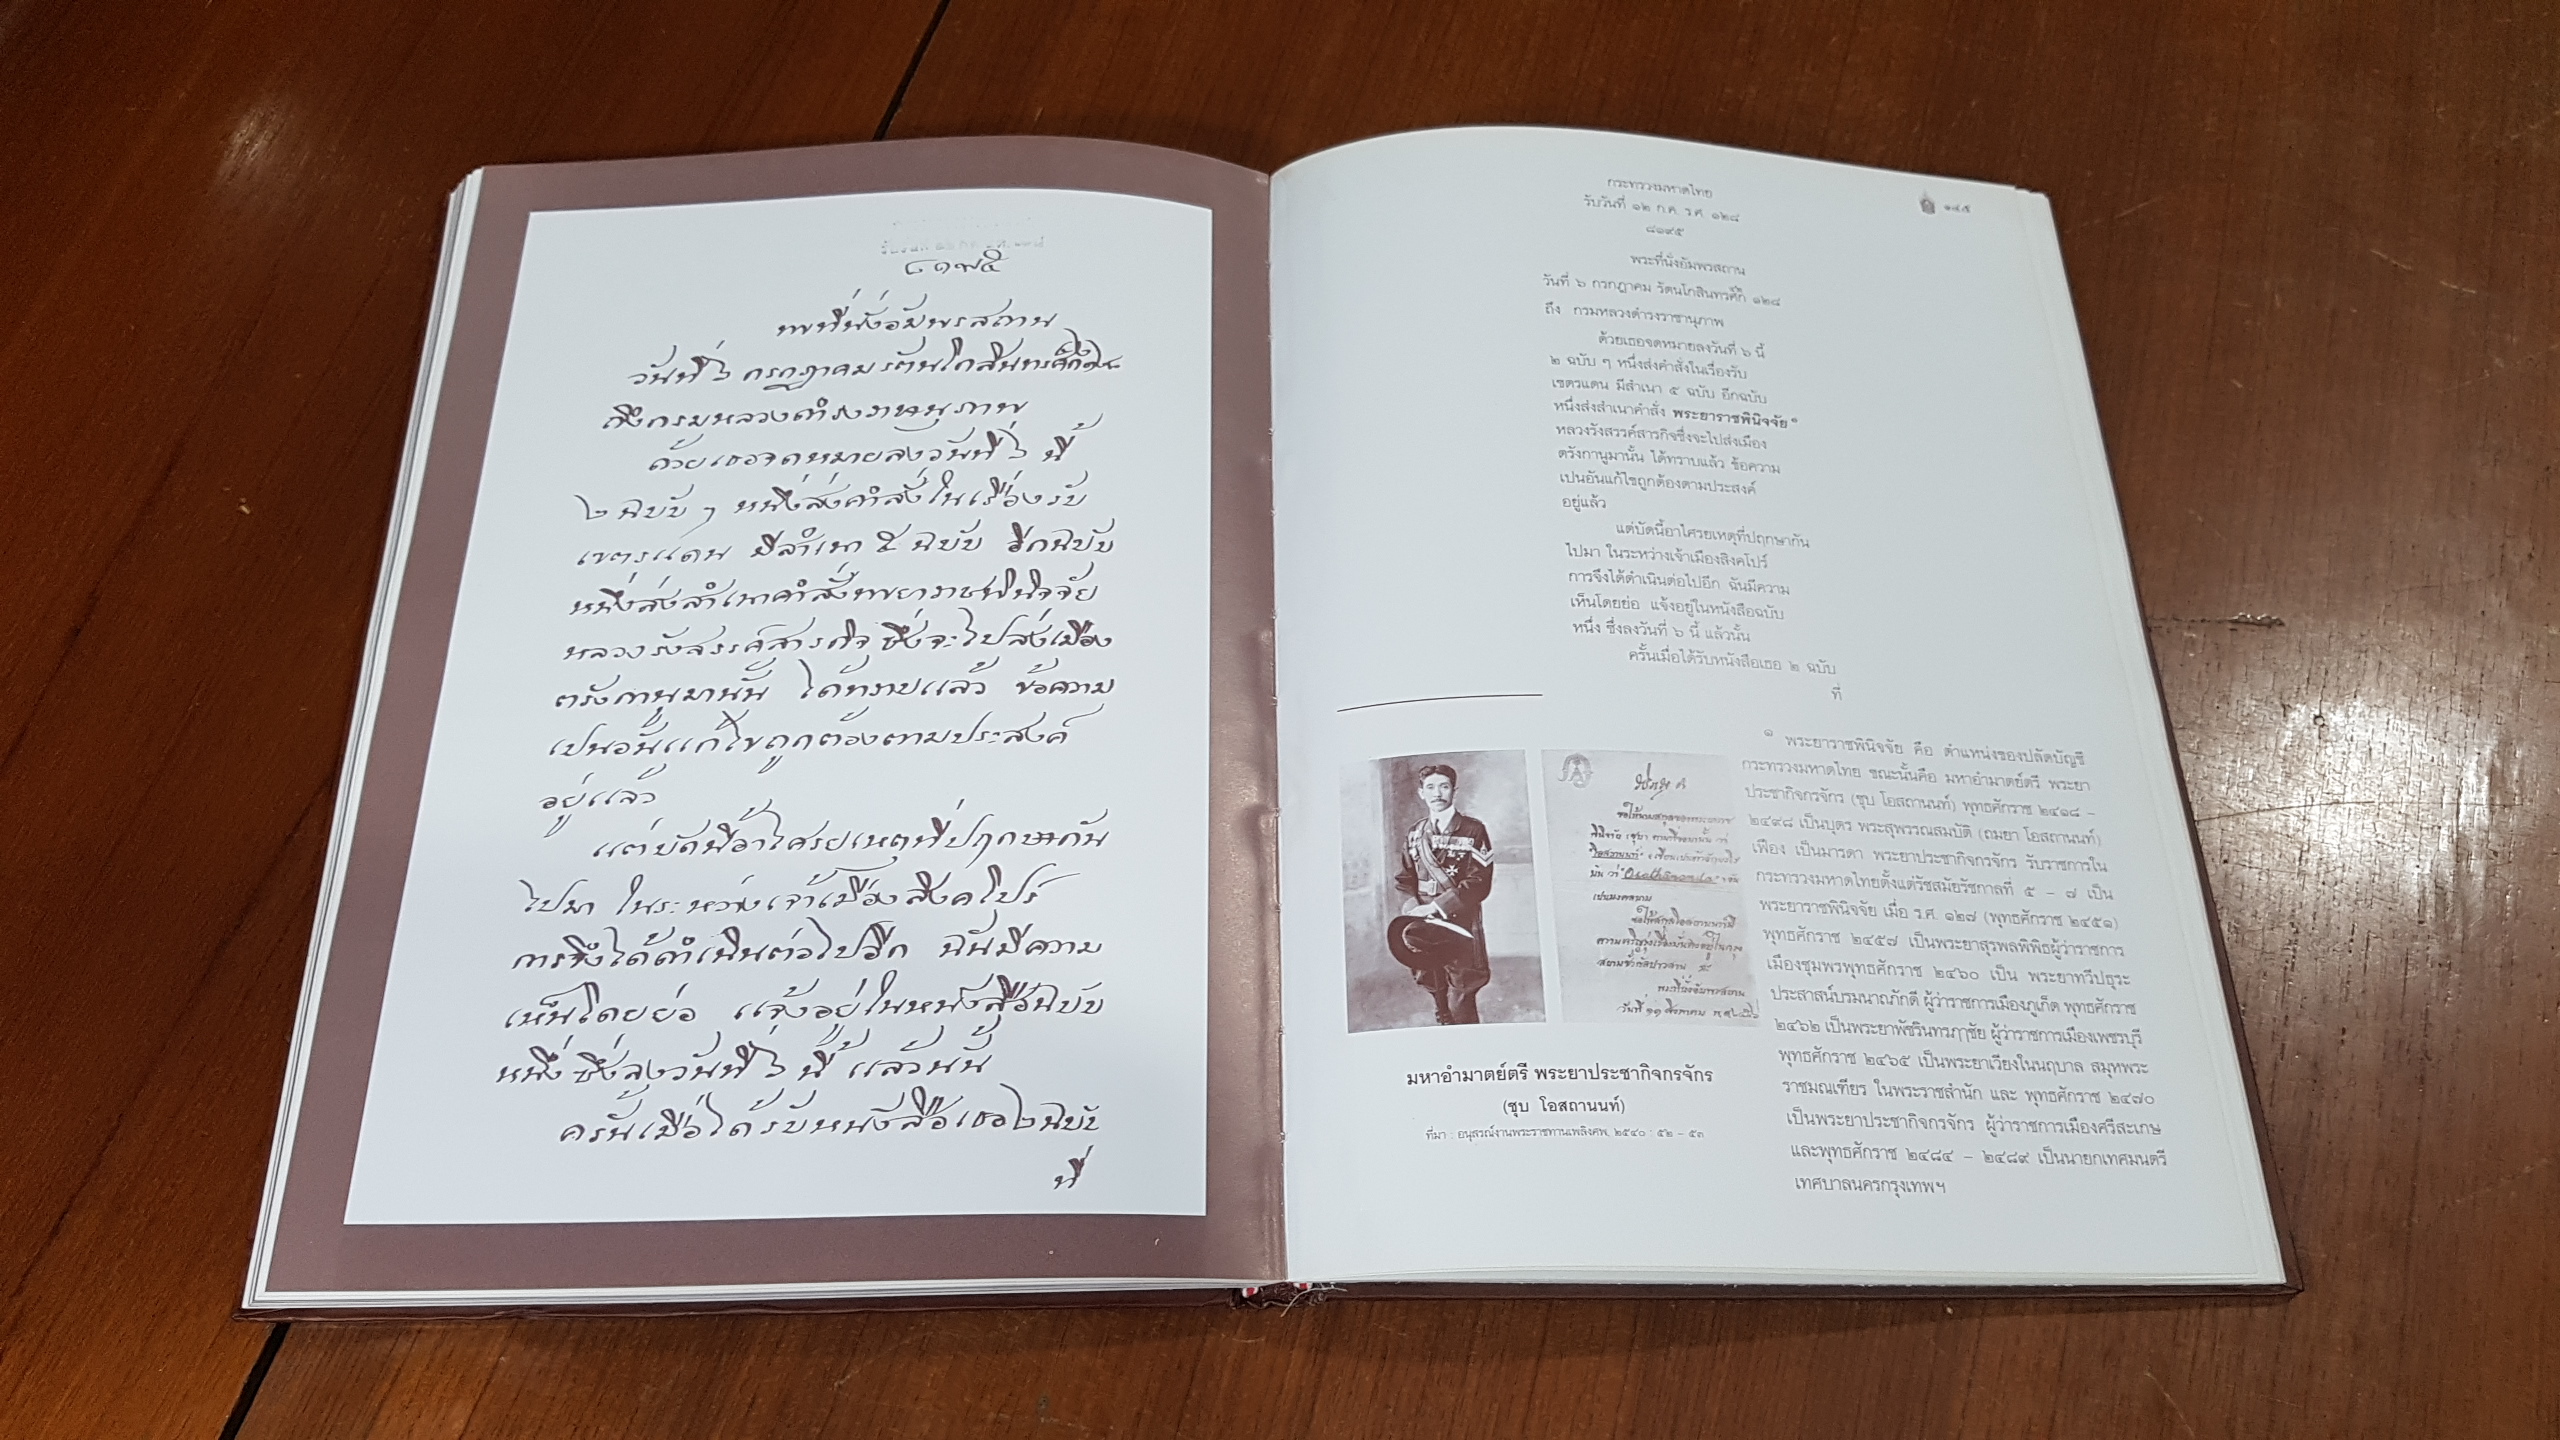 ๘๑๙๕
พระที่นั่งอัมพรสถาน
วันที่ ๖ กรกฎาคม รัตนโกสินทรศก๊ก ๑๒๘
ถึง กรมหลวงดำรงราชานุภาพ
ด้วยเธอจดหมายลงวันที่ ๖ นี้
๒ ฉบับ ๆ หนึ่งส่งคำสั่งในเรื่องรับ
เขตรแดน มีสำเนา ๕ ฉบับ อีกฉบับ
หนึ่งส่งสำเนาคำสั่งพระยาราชพินิจจัย
หลวงรังสรรค์สารกิจ ซึ่งจะไปส่งเมือง
ตรังกานูมานั้น ได้ทราบแล้ว ข้อความ
เปนอันแก้ไขถูกต้องตามประสงค์
อยู่แล้ว
แต่บัดนี้อาไศรยเหตุที่ปฤกษากัน
ไปมา ในระหว่างเจ้าเมืองสิงคโปร์
การจึงได้ดำเนินต่อไปอีก ฉันมีความ
เห็นโดยย่อ แจ้งอยู่ในหนังสือฉบับ
หนึ่ง ซึ่งลงวันที่ ๖ นี้ แล้วนั้น
ครั้นเมื่อได้รับหนังสือเธอ ๒ ฉบับ
ที่
๑๔๕
กระทรวงมหาดไทย
รับวันที่ ๑๒ ก.ค. ร.ศ. ๑๒๘
๘๑๙๕
พระที่นั่งอัมพรสถาน
วันที่ ๖ กรกฎาคม รัตนโกสินทรศก๊ก ๑๒๘
ถึง กรมหลวงดำรงราชานุภาพ
ด้วยเธอจดหมายลงวันที่ ๖ นี้
๒ ฉบับ ๆ หนึ่งส่งคำสั่งในเรื่องรับ
เขตรแดน มีสำเนา ๕ ฉบับ อีกฉบับ
หนึ่งส่งสำเนาคำสั่ง พระยาราชพินิจจัย ๑
หลวงรังสรรค์สารกิจซึ่งจะไปส่งเมือง
ตรังกานูมานั้น ได้ทราบแล้ว ข้อความ
เปนอันแก้ไขถูกต้องตามประสงค์
อยู่แล้ว
แต่บัดนี้อาไศรยเหตุที่ปฤกษากัน
ไปมา ในระหว่างเจ้าเมืองสิงคโปร์
การจึงได้ดำเนินต่อไปอีก ฉันมีความ
เห็นโดยย่อ แจ้งอยู่ในหนังสือฉบับ
หนึ่ง ซึ่งลงวันที่ ๖ นี้ แล้วนั้น
ครั้นเมื่อได้รับหนังสือเธอ ๒ ฉบับ
ที่
วันที่ ๑๑ สิงหาคม
มหาอำมาตย์ตรี พระยาประชากิจกรจักร
(ชุบ โอสถานนท์)
ที่มา : อนุสรณ์งานพระราชทานเพลิงศพ, ๒๕๔๐ : ๕๒ – ๕๓
๑ พระยาราชพินิจจัย คือ ตำแหน่งของปลัดบัญชี
กระทรวงมหาดไทย ขณะนั้นคือ มหาอำมาตย์ตรี พระยา
ประชากิจกรจักร (ชุบ โอสถานนท์) พุทธศักราช ๒๔๑๘ –
๒๔๙๘ เป็นบุตร พระสุพรรณสมบัติ (ถมยา โอสถานนท์)
เฟือง เป็นมารดา พระยาประชากิจกรจักร รับราชการใน
กระทรวงมหาดไทยตั้งแต่รัชสมัยรัชกาลที่ ๕ – ๗ เป็น
พระยาราชพินิจจัย เมื่อ ร.ศ. ๑๒๗ (พุทธศักราช ๒๔๕๑)
พุทธศักราช ๒๔๕๗ เป็นพระยาสุรพลพิพิธผู้ว่าราชการ
เมืองชุมพรพุทธศักราช ๒๔๖๐ เป็น พระยาทวีปธุระ
ประสาสน์บรมนาถภักดี ผู้ว่าราชการเมืองภูเก็ต พุทธศักราช
๒๔๖๒ เป็นพระยาพัชรินทรฦๅชัย ผู้ว่าราชการเมืองเพชรบุรี
พุทธศักราช ๒๔๖๕ เป็นพระยาเวียงในนฤบาล สมุหพระ
ราชมณเฑียร ในพระราชสำนัก และ พุทธศักราช ๒๔๗๐
เป็นพระยาประชากิจกรจักร ผู้ว่าราชการเมืองศรีสะเกษ
และพุทธศักราช ๒๔๘๔ – ๒๔๘๙ เป็นนายกเทศมนตรี
เทศบาลนครกรุงเทพฯ